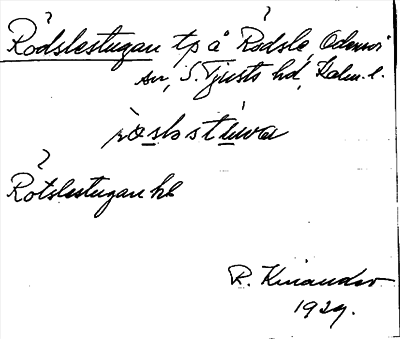 Rödslestugan tp å Rödsle, Odensvi
sn, S. Tjusts hd, Kalm. l.
ròslostuwa
Rötslestugan hl
R. Kinander
1929.